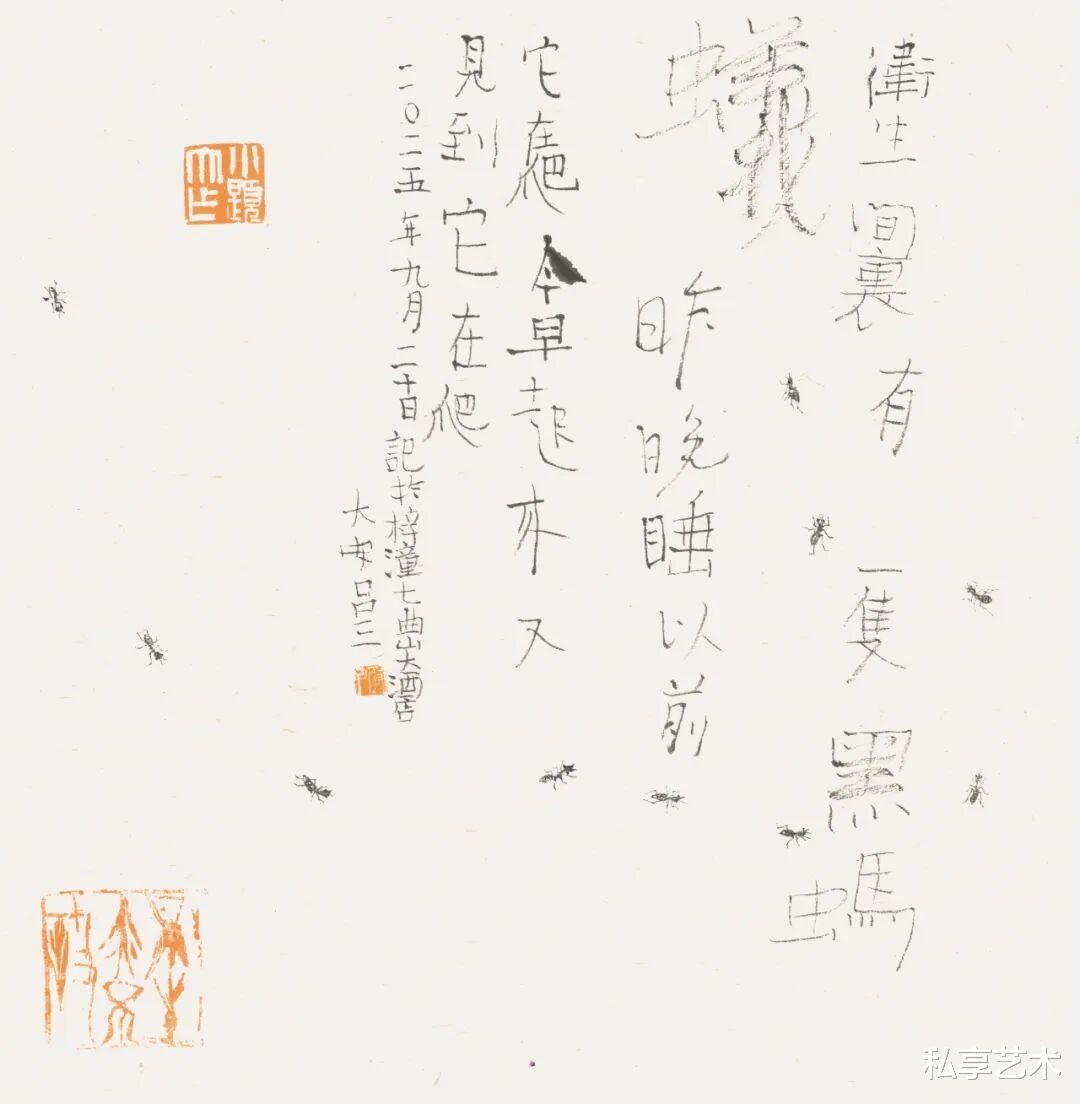 衛生間裏有一隻黑螞
蟻昨晚睡以前
它在爬今早起來又
見到它在爬
二〇二五年九月二十日記於梓潼七曲山大酒店
大安吕三
私享艺术